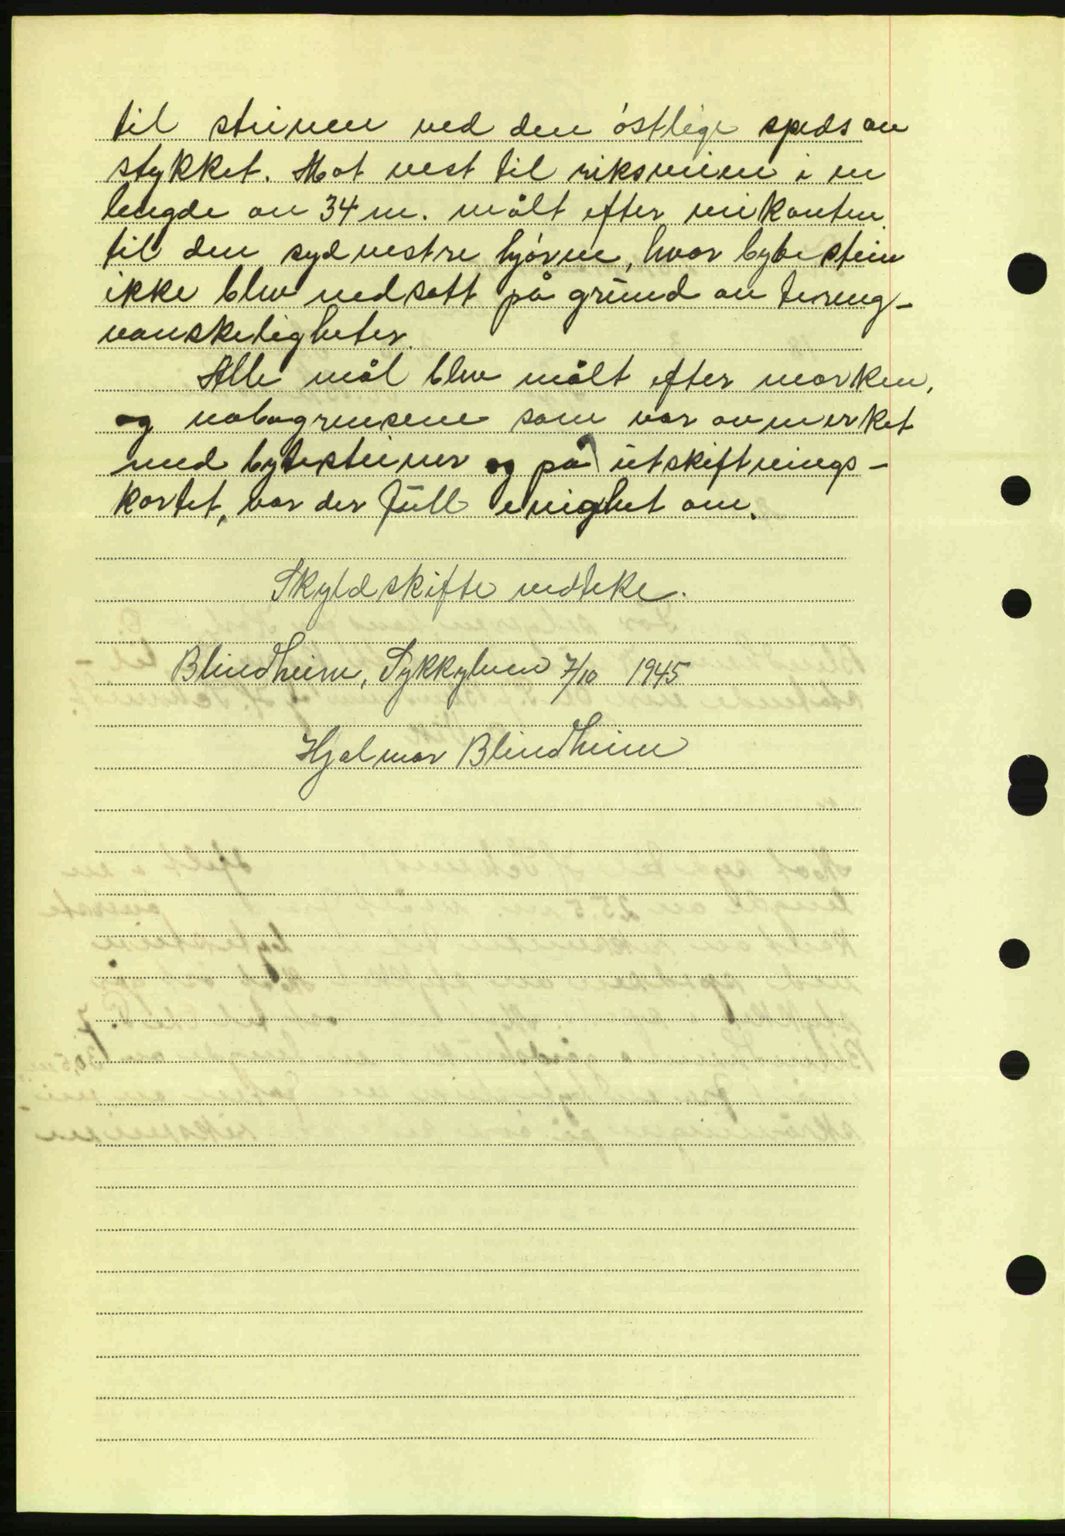 til steinen ved den östlige spids av
stykket. Mot vest til riksveien i en
lengde av 34 m. målt efter veikanten
til den sydvestre hjörne, hvor bytestein
ikke blev nedsatt på grund av tereng-
vanskeligheter.
Alle mål blev målt efter marken,
og nabogrensene som var avmerket
med bytesteiner og på utskiftnings-
kartet, var der full enighet om.
Skyldskifte vedteke.
Blindheim, Sykkylven 7/10 1945
Hjalmar Blindheim